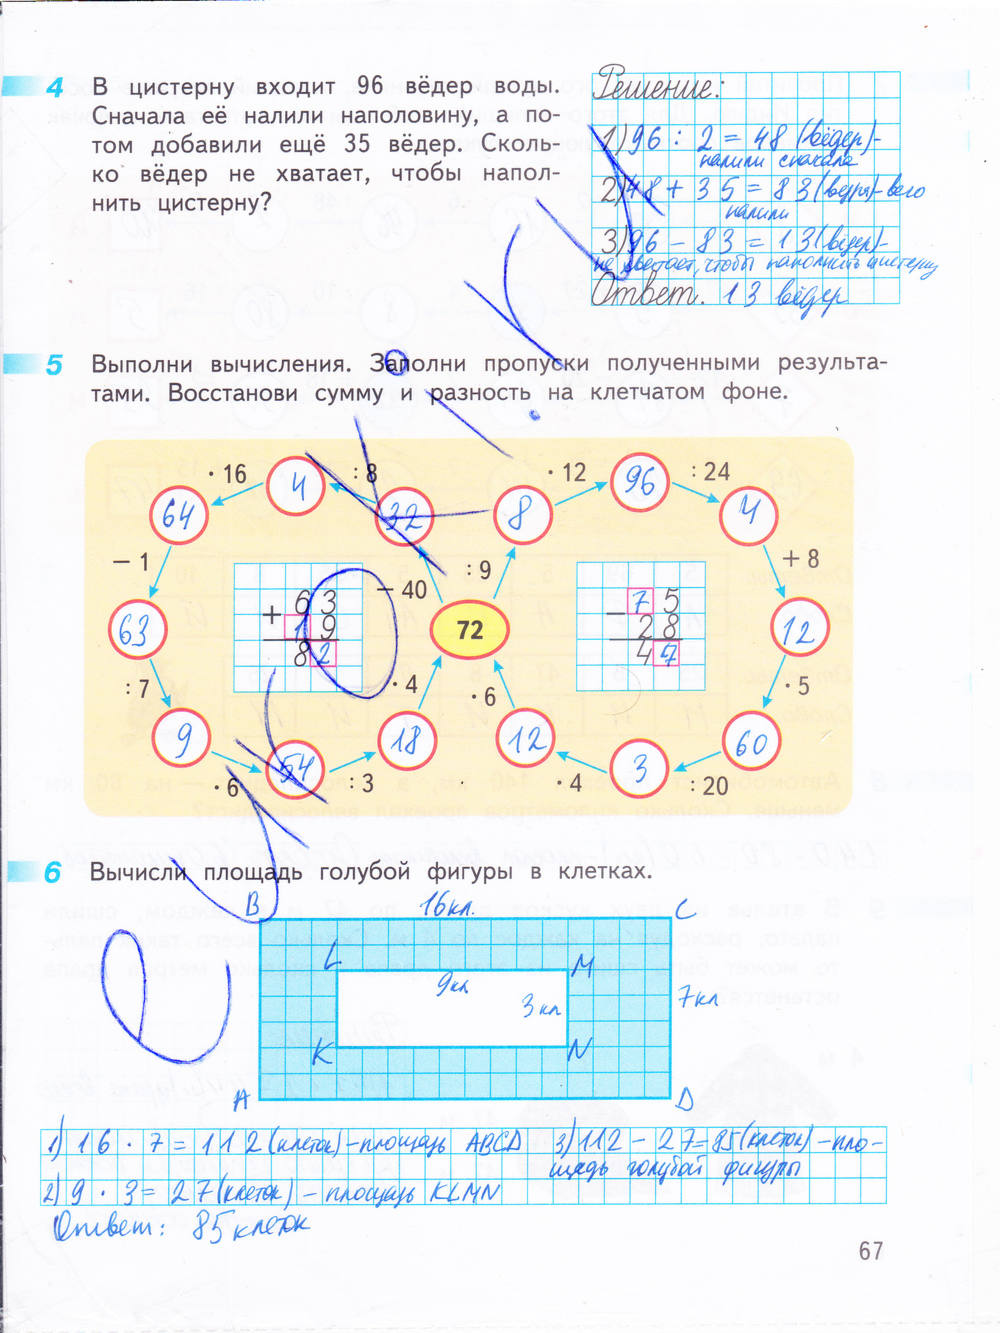 4 В цистерну входит 96 вёдер воды.
Сначала её налили наполовину, а по-
том добавили ещё 35 вёдер. Сколь-
ко вёдер не хватает, чтобы напол-
нить цистерну?
Решение:
1) 96 : 2 = 48 (вёдер)-
налили сначала
2) 48 + 35 = 83 (ведра)- всего
налили
3) 96 - 83 = 13 (вёдер)-
не хватает, чтобы наполнить цистерну
Ответ. 13 вёдер
5 Выполни вычисления. Заполни пропуски полученными результа-
тами. Восстанови сумму и разность на клетчатом фоне.
· 16 4 : 8 · 12 96 : 24
64 32 8 4
− 1 − 40 : 9 + 8
63 72 12
: 7 · 4 · 6 · 5
9 18 12 60
· 6 54 : 3 · 4 3 : 20
63
+ 19
82
− 75
28
47
6 Вычисли площадь голубой фигуры в клетках.
B 16кл. C
L M
9кл
3кл 7кл
K N
A D
1) 16 · 7 = 112 (клеток) - площадь ABCD
2) 9 · 3 = 27 (клеток) - площадь KLMN
3) 112 - 27 = 85 (клеток) - пло-
щадь голубой фигуры
Ответ: 85 клеток
67